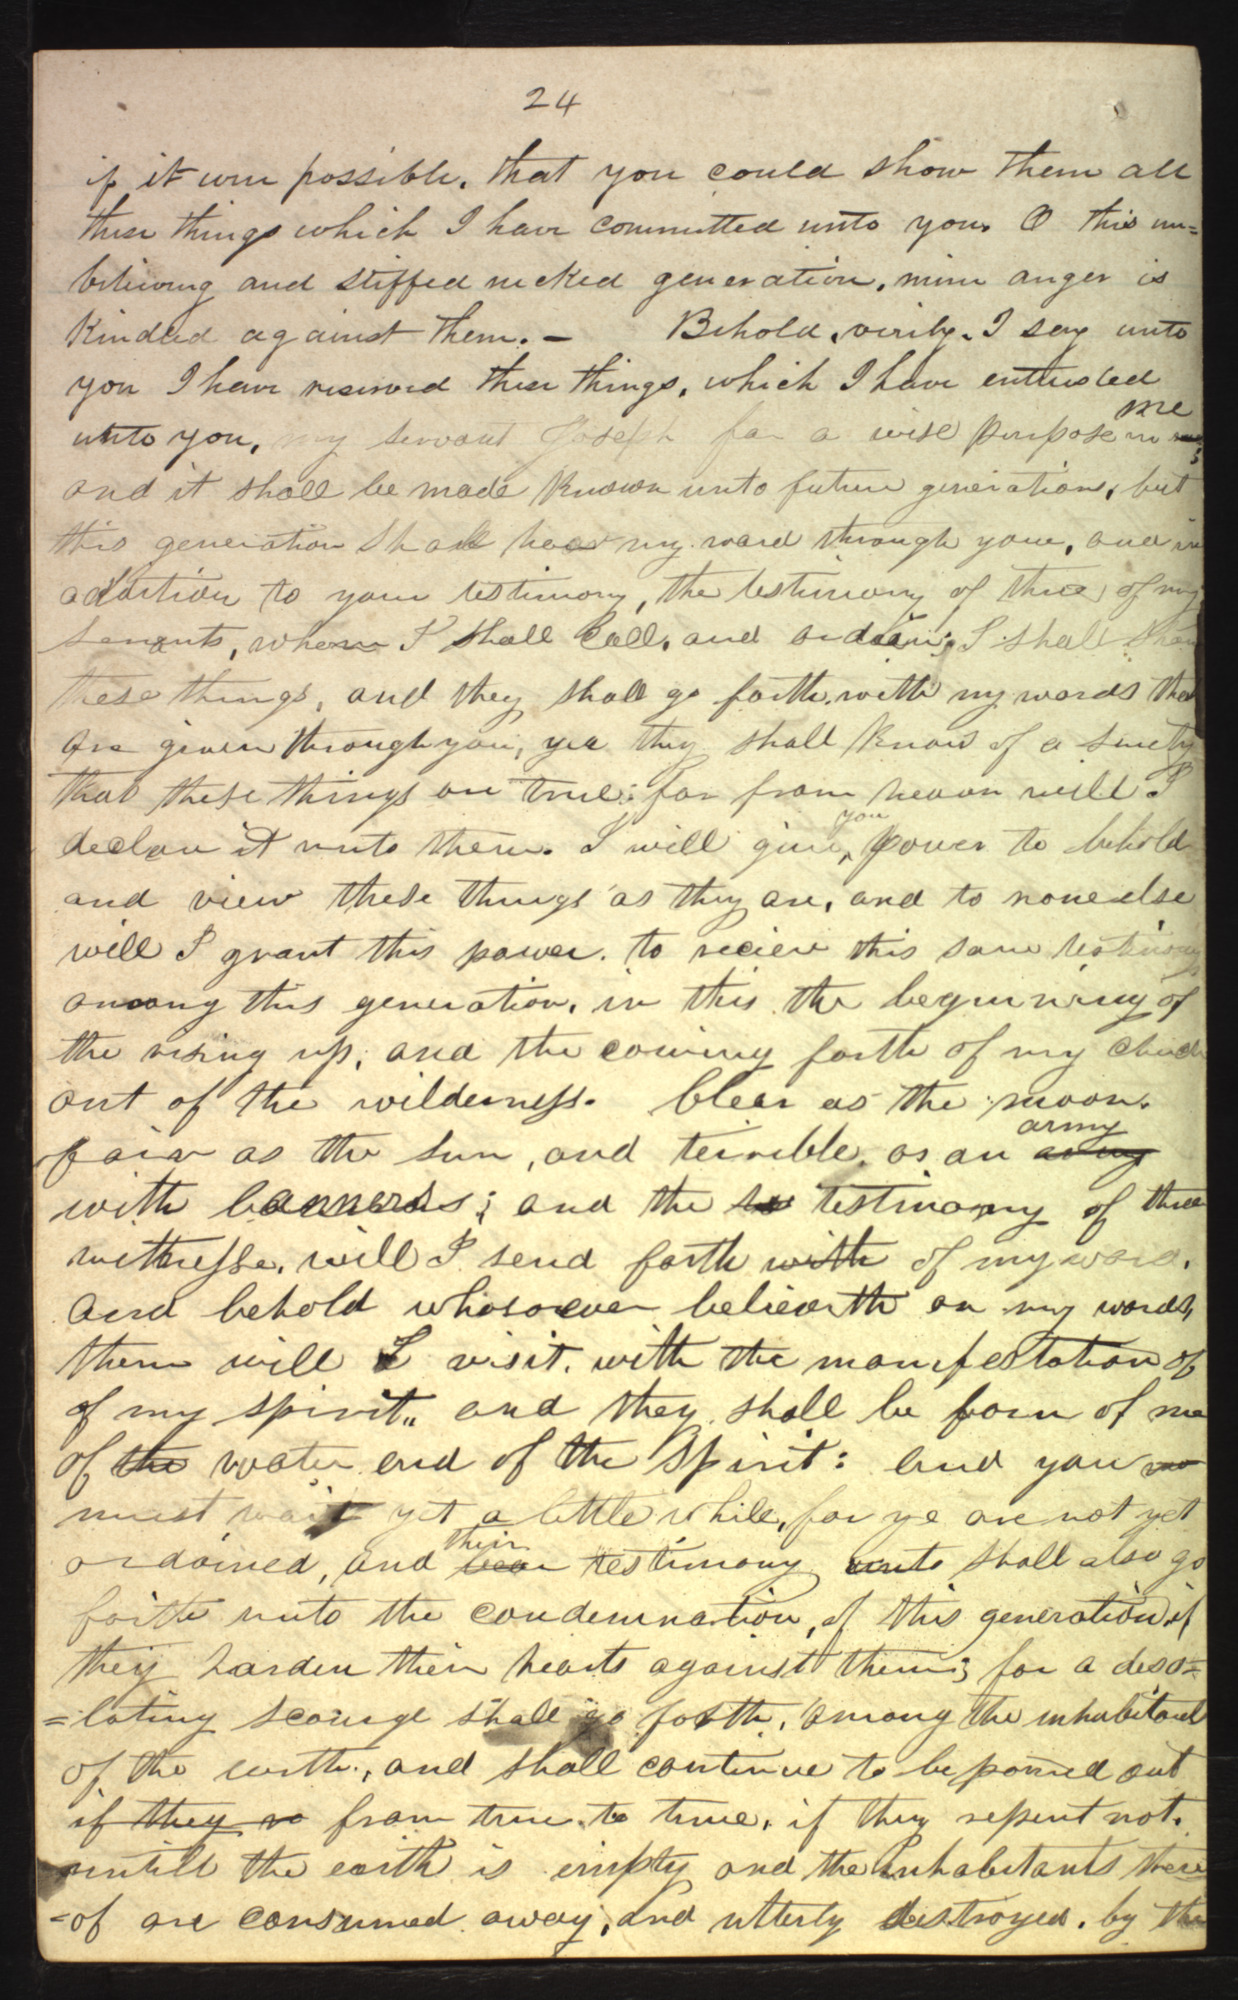 24
if it were possible, that you could show them all
these things which I have committed unto you. O this un=
believing and stiffed necked generation, mine anger is
Kindled against them. — Behold, verily, I say unto
you I have reserved these things, which I have entrusted
unto you, my servant Joseph for a wise purpose in me
and it shall be made Known unto future generations, but
this generation shall have my word through you, and in
addition to your testimony, the testimony of three of my
servants, whom I shall call, and ordain; I shall show
these things, and they shall go forth with my words that
are given through you, yea they shall Know of a surety
that these things are true; for from heaven will I
declare it unto them. I will give you power to behold
and view these things as they are, and to none else
will I grant this power, to recieve this same testimony
among this generation, in this the beginning of
the rising up, and the coming forth of my church
out of the wilderness. Clear as the moon,
fair as the sun, and terrible as an army army
with banners; and the testimony of three
witnesse, will I send forth with of my word,
And behold whosoever believeth on my words,
them will I visit, with the manifestation of
of my spirit, and they shall be born of me
of the water and of the Spirit: and you
must wait yet a little while, for ye are not yet
ordained, and their testimony unto shall also go
forth unto the condemnation, of this generation if
they harden their hearts against them; for a deso=
=lating scourge shall go forth, among the inhabitants
of the earth, and shall continue to be poured out
if they re from time, to time, if they repent not,
untill the earth is empty and the inhabitants there
=of are consumed away, and utterly destroyed, by the